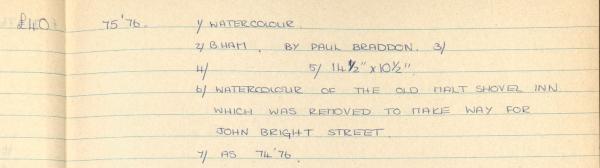 £40 75'76. 1/ WATERCOLOUR.
2/ B'HAM, BY PAUL BRADDON. 3/
4/ 5/ 14½" x 10½".
6/ WATERCOLOUR OF THE OLD MALT SHOVEL INN
WHICH WAS REMOVED TO MAKE WAY FOR
JOHN BRIGHT STREET.
7/ AS 74'76.